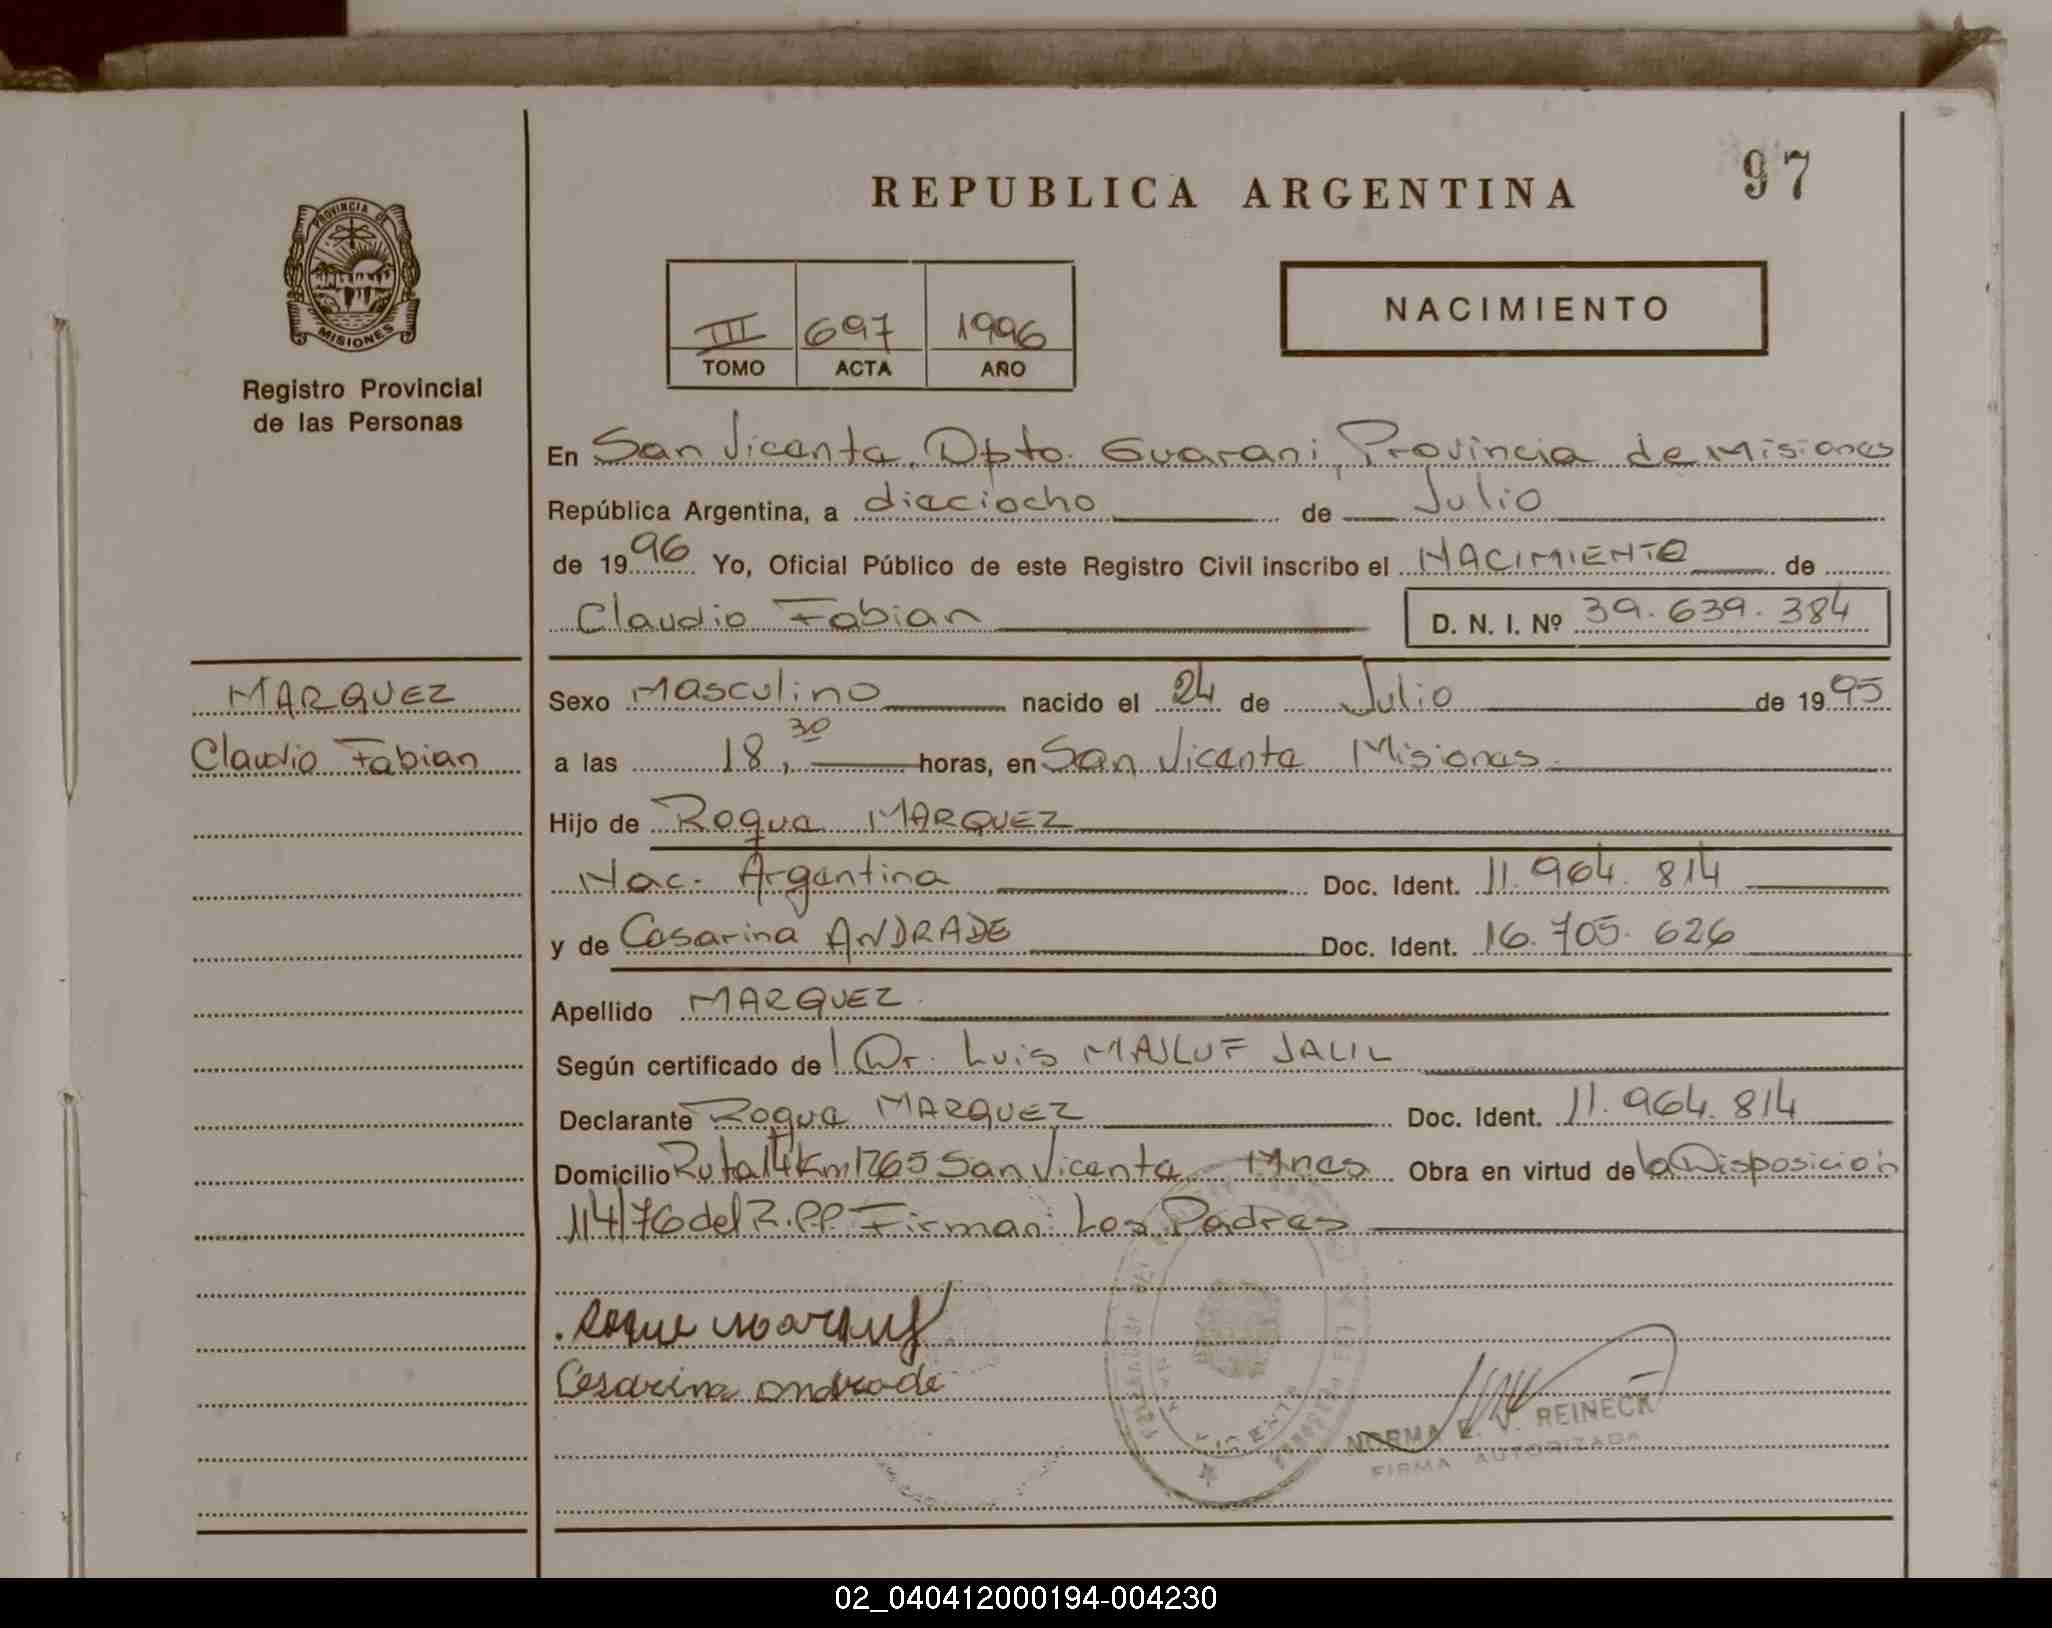 97
REPUBLICA ARGENTINA
PROVINCIA DE
MISIONES
Registro Provincial
de las Personas
III 697 1996
TOMO ACTA AÑO
NACIMIENTO
En San Vicente, Dpto. Guarani, Provincia de Misiones
República Argentina, a dieciocho de Julio
de 1996 Yo, Oficial Público de este Registro Civil inscribo el NACIMIENTO de
Claudio Fabian D. N. I. Nº 39.639.384
MARQUEZ
Claudio Fabian
Sexo Masculino nacido el 24 de Julio de 1995
a las 18,30 horas, en San Vicente Misiones
Hijo de Roque MARQUEZ
Nac. Argentina Doc. Ident. 11.964.814
y de Cesarina ANDRADE Doc. Ident. 16.705.626
Apellido MARQUEZ
Según certificado de Dr. Luis MAJLUF JALIL
Declarante Roque MARQUEZ Doc. Ident. 11.964.814
Domicilio Ruta 14 Km 1265 San Vicente Mnes Obra en virtud de la Disposición
114/76 del R.P.P. Firman: Los Padres
Roque Marquez
Cesarina andrade
VICENTE
NORMA E. V. REINECK
FIRMA AUTORIZADA
02_040412000194-004230